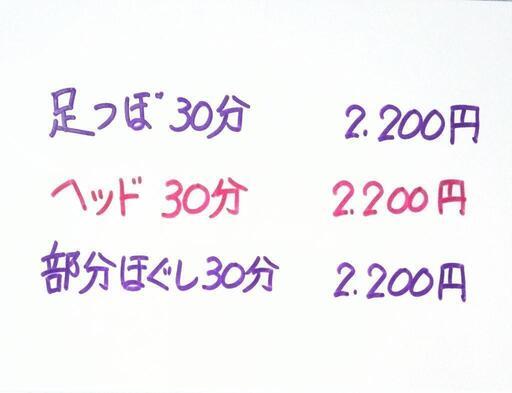 足つぼ 30分 2.200円
ヘッド 30分 2.200円
部分ほぐし30分 2.200円